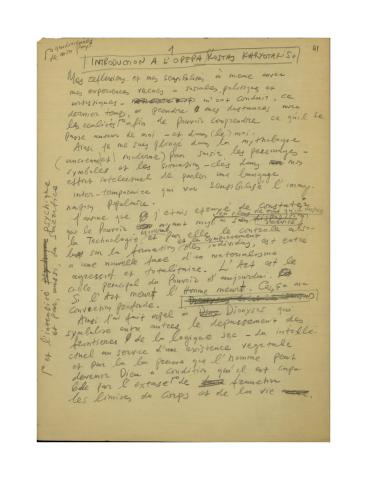 1
41
INTRODUCTION A L'OPERA KOSTAS KARYOTAKIS
Mes reflexions et mes sensibilités à meme avec
mes experiences vecues - sociales, politiques et
artistiques - m'ont conduit, ce
dernier temps, à prendre mes distances avec
les realités afin de pouvoir comprendre ce qu'il se
passe autour de moi - et dans (le) moi.
Ainsi je me suis plongé dans la mythologie
(ancienne et moderne) pour saisir les personnages -
symboles et les situations - clés dans mon
effort intellectuel de parler une langue
inter-temporaire qui va sensibiliser l'imagi-
nation populaire.
J'avoue que j'etais eprouvé de constater
que le Pouvoir ayant à son service
la Technologie et par elle le controle
sur la formation des individus, est entré
a une nouvelle face d'un materialisme
agressif et totalitaire. L'Art est le
cible principal du Pouvoir d'aujourd'hui.
Si l'Art meurt l'Homme meurt. Ceci, est ma
conviction profonde.
Ainsi j'ai fait appel à Dionysos qui
symbolise entre autres le depassement des
frontieres de la logique sec - du intelle-
ctuel au service d'une existence vegetale
et par là la preuve que l'homme peut
devenir Dieu à condition qu'il est capa
ble par l'extase de
les limites du corps et de la vie